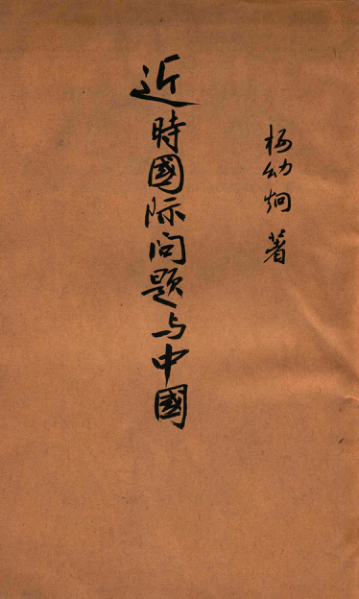 杨幼炯 著
近時國际问题与中國